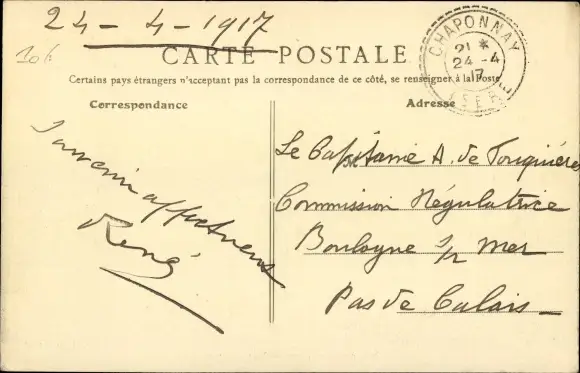 24 - 4 - 1917
10f
CARTE POSTALE
Certains pays étrangers n'acceptant pas la correspondance de ce côté, se renseigner à la Poste
Correspondance
Adresse
CHAPONNAY
21 *
24 -4
17
ISERE
Souvenir affectueux
René
Le Capitaine A. de Touquières
Commission Régulatrice
Boulogne s/ Mer
Pas de Calais